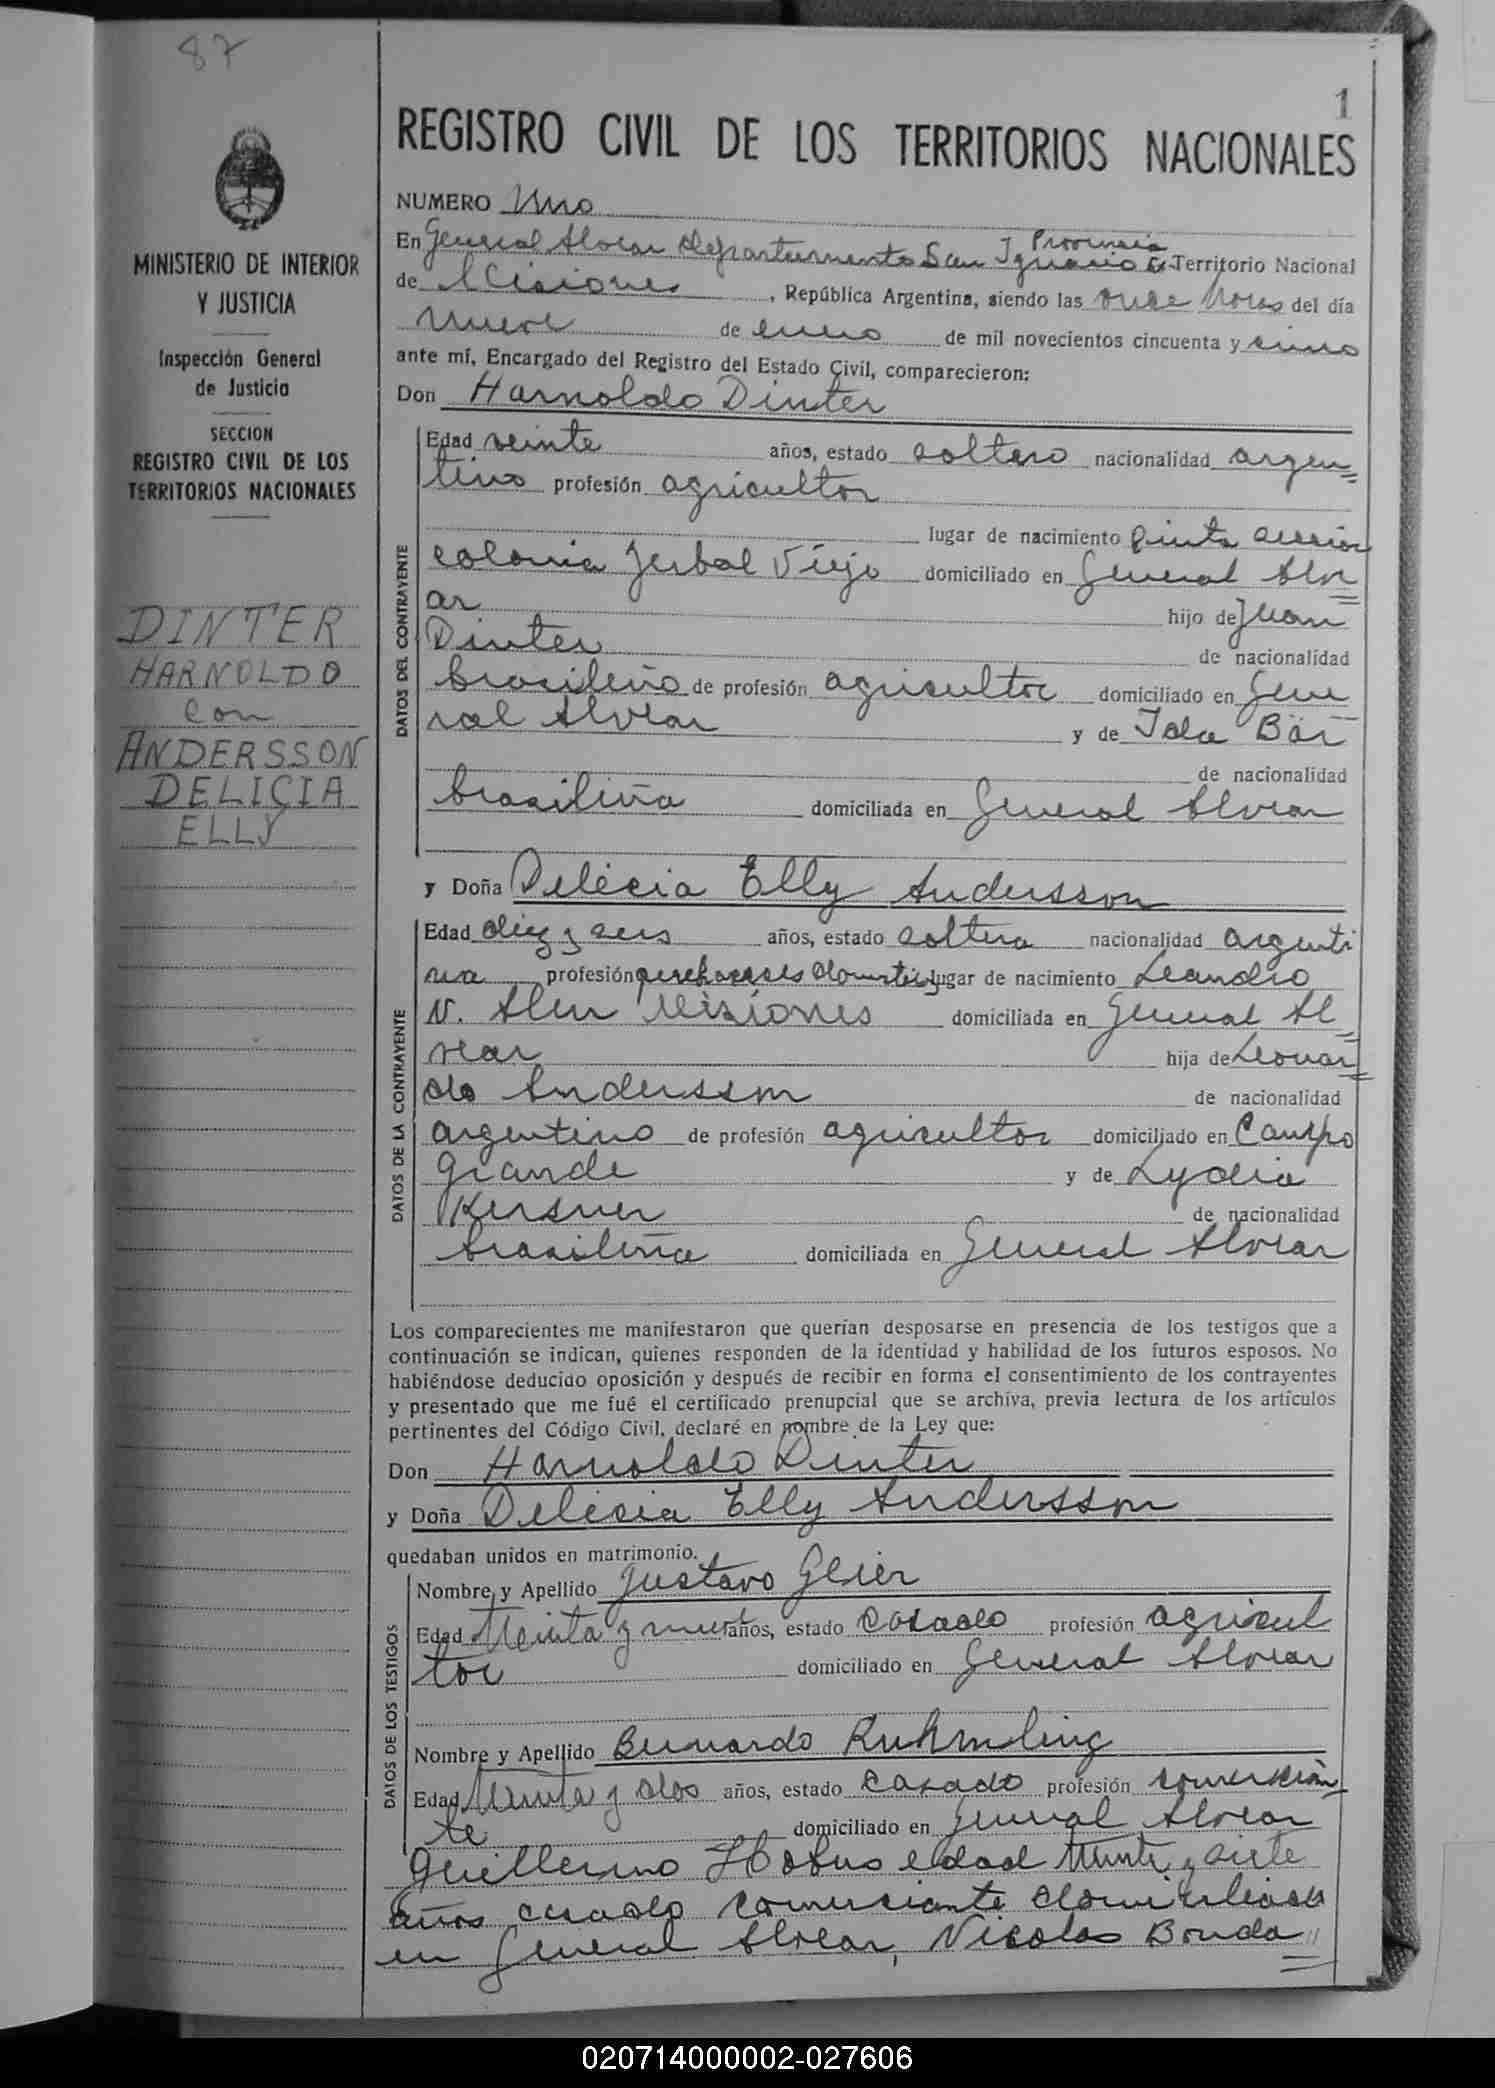 87
1
MINISTERIO DE INTERIOR
Y JUSTICIA
Inspección General
de Justicia
SECCION
REGISTRO CIVIL DE LOS
TERRITORIOS NACIONALES
DINTER
HARNOLDO
con
ANDERSSON
DELICIA
ELLY
REGISTRO CIVIL DE LOS TERRITORIOS NACIONALES
NUMERO Uno
En General Alvear departamento San Ignacio Provincia Territorio Nacional
de Misiones, República Argentina, siendo las once horas del día
nueve de enero de mil novecientos cincuenta y cinco
ante mí, Encargado del Registro del Estado Civil, comparecieron:
Don Harnoldo Dinter
DATOS DEL CONTRAYENTE
Edad veinte años, estado soltero nacionalidad argen=
tino profesión agricultor
lugar de nacimiento quinta sección
colonia Yerbal Viejo domiciliado en General Alve
ar hijo de Juan
Dinter de nacionalidad
brasileño de profesión agricultor domiciliado en Gene
ral Alvear y de Ida Bär
de nacionalidad
brasileña domiciliada en General Alvear
y Doña Delicia Elly Andersson
DATOS DE LA CONTRAYENTE
Edad diez y seis años, estado soltera nacionalidad argenti
na profesión quehaceres domésticos lugar de nacimiento Leandro
N. Alem Misiones domiciliada en General Al
vear hija de Leonar=
do Andersson de nacionalidad
argentino de profesión agricultor domiciliado en Campo
Grande y de Lydia
Kersner de nacionalidad
brasileña domiciliada en General Alvear
Los comparecientes me manifestaron que querían desposarse en presencia de los testigos que a
continuación se indican, quienes responden de la identidad y habilidad de los futuros esposos. No
habiéndose deducido oposición y después de recibir en forma el consentimiento de los contrayentes
y presentado que me fué el certificado prenupcial que se archiva, previa lectura de los artículos
pertinentes del Código Civil, declaré en nombre de la Ley que:
Don Harnoldo Dinter
y Doña Delicia Elly Andersson
quedaban unidos en matrimonio.
DATOS DE LOS TESTIGOS
Nombre y Apellido Gustavo Geier
Edad treinta y nueve años, estado casado profesión agricul
tor domiciliado en General Alvear
Nombre y Apellido Bernardo Ruhmling
Edad treinta y dos años, estado casado profesión comercian
te domiciliado en General Alvear
Guillermo Hobus edad treinta y siete
años casado comerciante domiciliado
en General Alvear, Nicolas Bonda
020714000002-027606